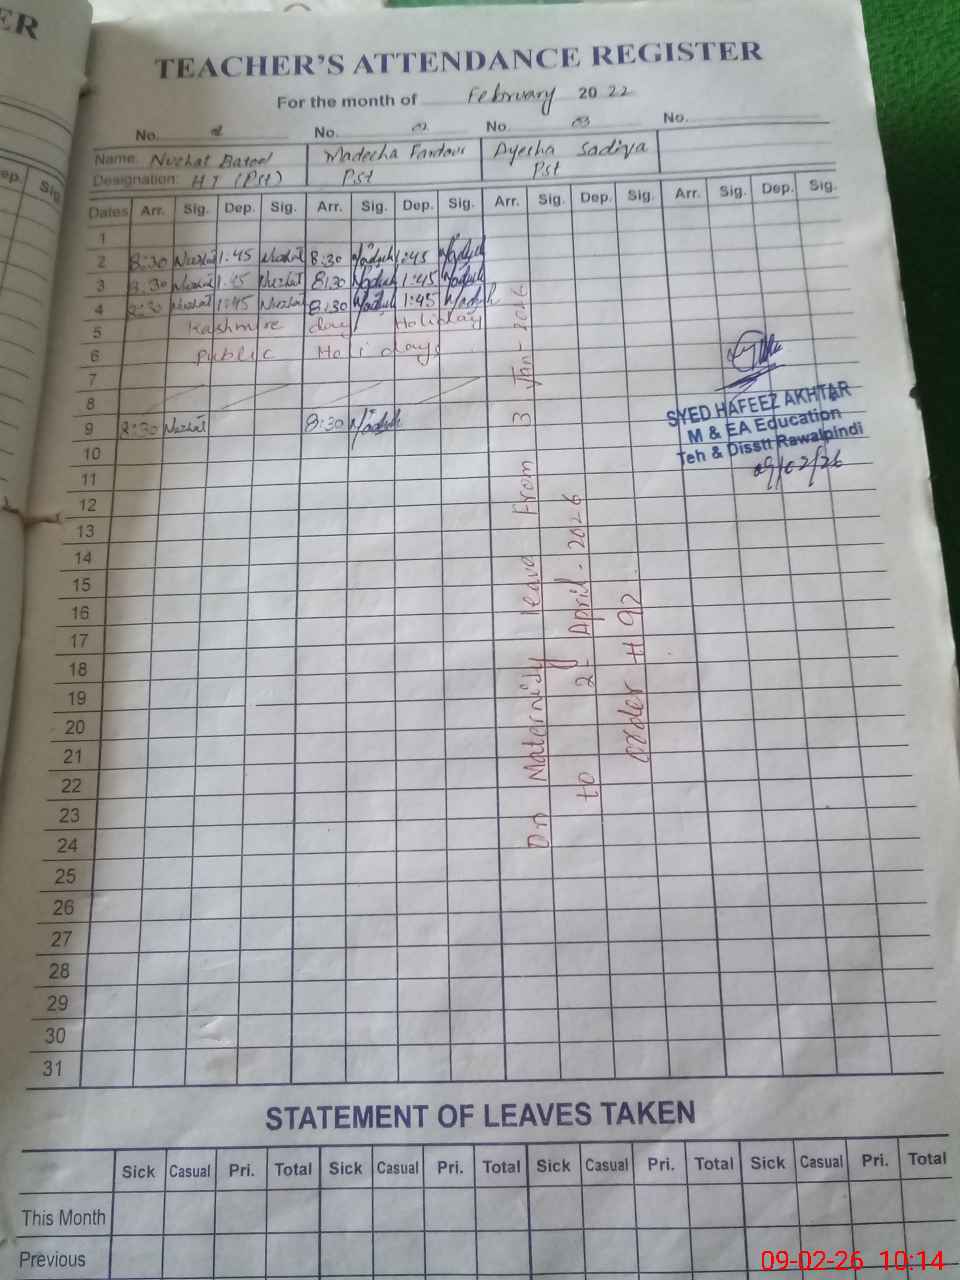 ER
TEACHER'S ATTENDANCE REGISTER
For the month of February 20 22
No. No. 02 No. 03 No.
Name: Nuzhat Batool Madeeha Ayesha Sadiya
Designation: HT (Pst) Pst Pst
ep. Sig
Dates Arr. Sig. Dep. Sig. Arr. Sig. Dep. Sig. Arr. Sig. Dep. Sig. Arr. Sig. Dep. Sig.
1
2 8:30 Nuzhat 1:45 Nuzhat 8:30 1:45
3 8:30 Nuzhat 1:45 Nuzhat 8:30 1:45
4 8:30 Nuzhat 1:45 Nuzhat 8:30 1:45
5 Kashmire day Holiday
6 Public Holidays
7
8
9 8:30 Nuzhat 8:30
10
11
12
13
14
15
16
17
18
19
20
21
22
23
24
25
26
27
28
29
30
31
On Maternidy leave From 3 Jan-2026
to 2 April-2026
order # 92
SYED HAFEEZ AKHTAR
M & EA Education
Teh & Disstt Rawalpindi
09/02/26
STATEMENT OF LEAVES TAKEN
Sick Casual Pri. Total Sick Casual Pri. Total Sick Casual Pri. Total Sick Casual Pri. Total
This Month
Previous
09-02-26 10:14